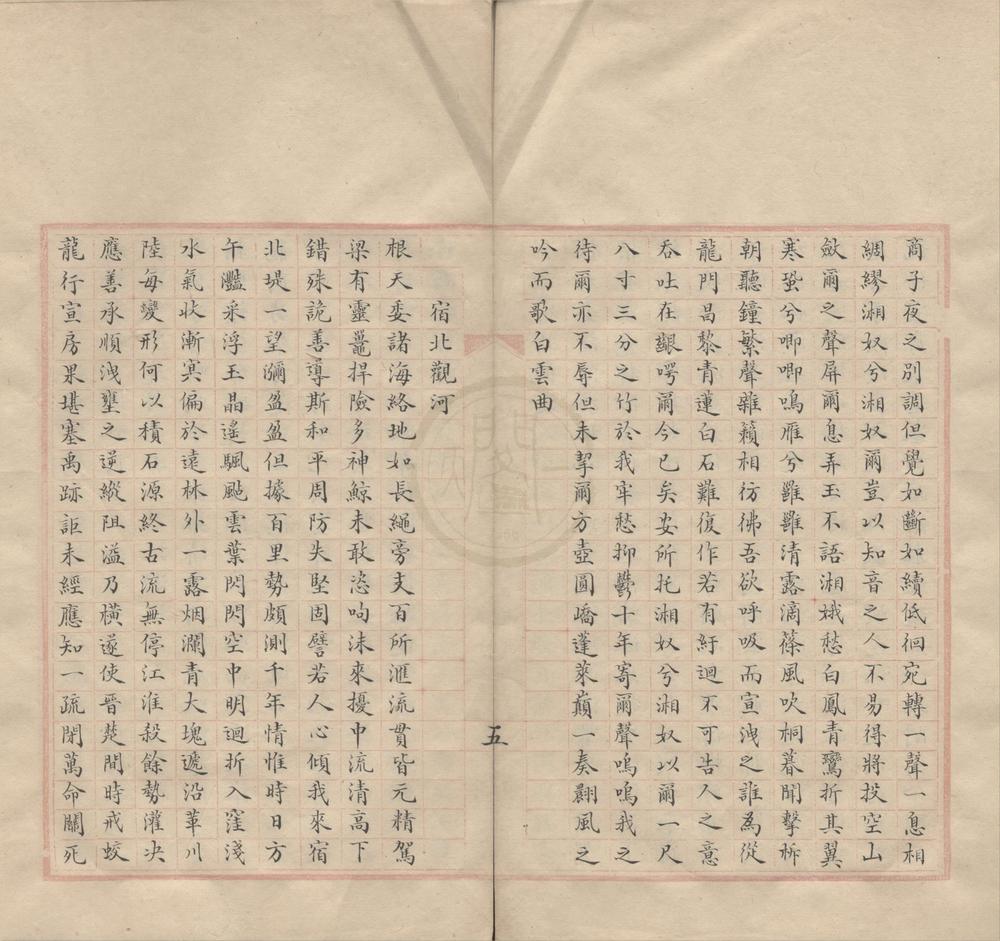 商子夜之別調但覺如斷如續低徊宛轉一聲一息相
綢繆湘奴兮湘奴爾豈以知音之人不易得將投空山
斂爾之聲屏爾息弄玉不語湘娥愁白鳳青鸞折其翼
寒蛩兮唧唧鳴雁兮雝雝清露滴篠風吹桐暮聞擊柝
朝聽鐘繁聲雜籟相彷彿吾欲呼吸而宣洩之誰為從
龍門昌黎青蓮白石難復作若有紆迴不可告人之意
吞吐在齦咢爾今已矣安所托湘奴兮湘奴以爾一尺
八寸三分之竹於我牢愁抑鬱十年寄爾聲嗚嗚我之
待爾亦不辱但未挈爾方壺圓嶠蓬萊巔一奏翺風之
吟而歌白雲曲
五
宿北觀河
根天委諸海絡地如長繩旁支百所滙流貫皆元精駕
梁有靈鼉捍險多神鯨未敢恣呴沫來擾中流清高下
錯殊詭善導斯和平周防失堅固譬若人心傾我來宿
北堤一望瀰盈盈但據百里勢頗測千年情惟時日方
午灩采浮玉晶遙颿颭雲葉閃閃空中明迴折入窪淺
水氣收漸冥偏於遠林外一露烟瀾青大塊遞沿革川
陸每變形何以積石源終古流無停江淮殺餘勢灌決
應善承順洩壅之逆縱阻溢乃橫遂使晉楚間時戒蛟
龍行宣房果堪塞禹跡詎未經應知一疏閉萬命關死